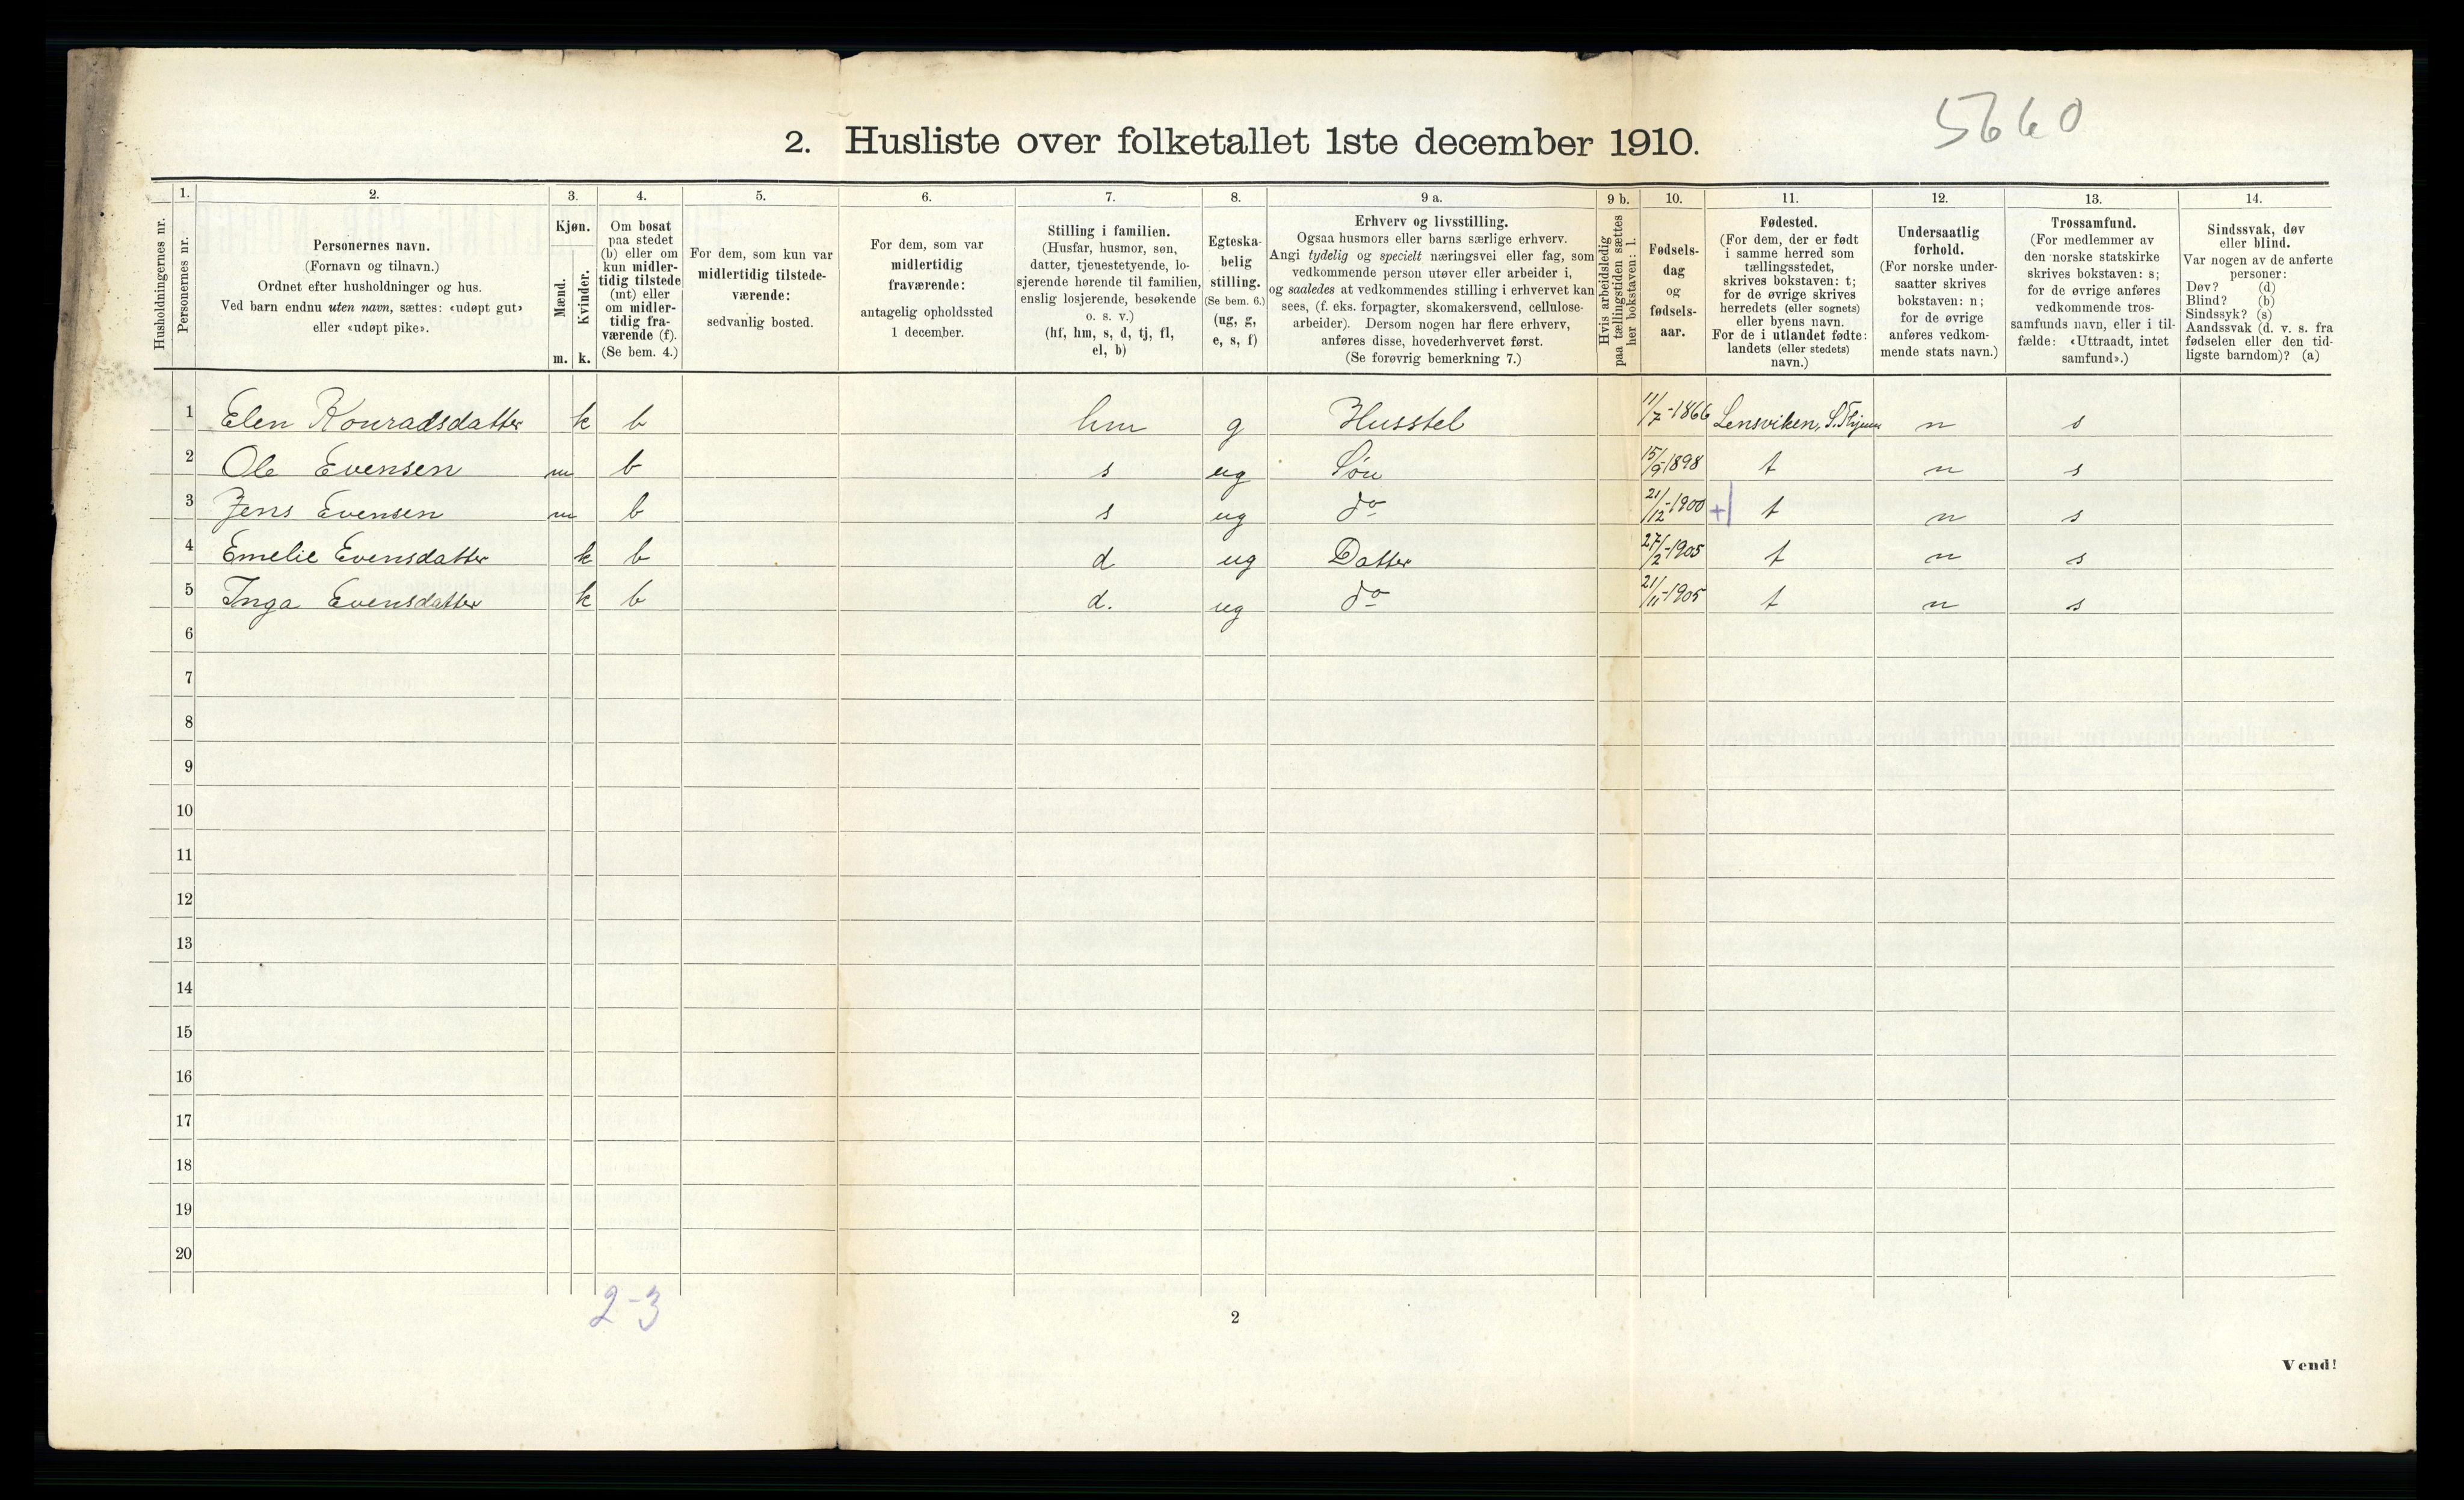 5660
2. Husliste over folketallet 1ste december 1910.
Husholdningernes nr.
1.
Personernes nr.
2.
Personernes navn.
(Fornavn og tilnavn.)
Ordnet efter husholdninger og hus.
Ved barn endnu uten navn, sættes: «udøpt gut»
eller «udøpt pike».
3.
Kjøn.
Mænd.
Kvinder.
m. k.
4.
Om bosat
paa stedet
(b) eller om
kun midler-
tidig tilstede
(mt) eller
om midler-
tidig fra-
værende (f).
(Se bem. 4.)
5.
For dem, som kun var
midlertidig tilstede-
værende:
sedvanlig bosted.
6.
For dem, som var
midlertidig
fraværende:
antagelig opholdssted
1 december.
7.
Stilling i familien.
(Husfar, husmor, søn,
datter, tjenestetyende, lo-
sjerende hørende til familien,
enslig losjerende, besøkende
o. s. v.)
(hf, hm, s, d, tj, fl,
el, b)
8.
Egteska-
belig
stilling.
(Se bem. 6.)
(ug, g,
e, s, f)
9 a.
Erhverv og livsstilling.
Ogsaa husmors eller barns særlige erhverv.
Angi tydelig og specielt næringsvei eller fag, som
vedkommende person utøver eller arbeider i,
og saaledes at vedkommendes stilling i erhvervet kan
sees, (f. eks. forpagter, skomakersvend, cellulose-
arbeider). Dersom nogen har flere erhverv,
anføres disse, hovederhvervet først.
(Se forøvrig bemerkning 7.)
9 b.
Hvis arbeidsledig
paa tællingstiden sættes
her bokstaven: l.
10.
Fødsels-
dag
og
fødsels-
aar.
11.
Fødested.
(For dem, der er født
i samme herred som
tællingsstedet,
skrives bokstaven: t;
for de øvrige skrives
herredets (eller sognets)
eller byens navn.
For de i utlandet fødte:
landets (eller stedets)
navn.)
12.
Undersaatlig
forhold.
(For norske under-
saatter skrives
bokstaven: n;
for de øvrige
anføres vedkom-
mende stats navn.)
13.
Trossamfund.
(For medlemmer av
den norske statskirke
skrives bokstaven: s;
for de øvrige anføres
vedkommende tros-
samfunds navn, eller i til-
fælde: «Uttraadt, intet
samfund».)
14.
Sindssvak, døv
eller blind.
Var nogen av de anførte
personer:
Døv? (d)
Blind? (b)
Sindssyk? (s)
Aandssvak (d. v. s. fra
fødselen eller den tid-
ligste barndom)? (a)
1 Elen Konradsdatter k b hm g Husstel 11/7-1866 Lensviken, n s
2 Ole Evensen m b s ug Søn 15/9-1898 t n s
3 Jens Evensen m b s ug do 21/12-1900 + t n s
4 Emelie Evensdatter k b d ug Datter 27/2-1905 t n s
5 Inga Evensdatter k b d. ug do 21/11-1905 t n s
6
7
8
9
10
11
12
13
14
15
16
17
18
19
20
2-3
2
Vend!